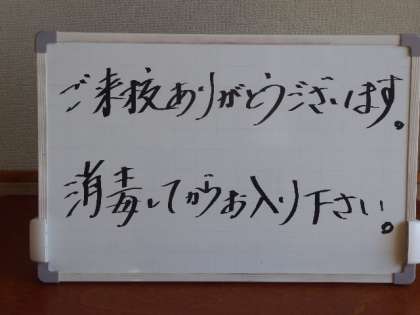 ご来校ありがとうございます。
消毒してからお入り下さい。